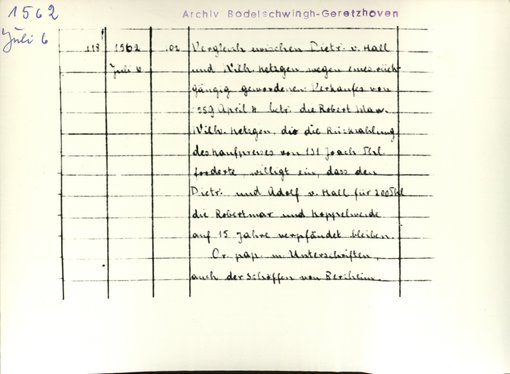 1562
Juli 6
Archiv Bodelschwingh-Geretzhoven
118 1562 Vergleich zwischen Dietr. v. Hall
Juli und Wilh. Ketzgen wegen eines rück-
gängig gewordenen Verkaufes von
1559 April betr. die Robert Mar.
Wilh. Ketzgen, die die Rückzahlung
des Kaufpreises von 131 Joach. Thl.
forderte, willigt ein, dass den
Dietr. und Adolf v. Hall für 200 Thl
die Robertmar und Koppelweide
auf 15 Jahre verpfändet bleiben.
Or. pap. m. Unterschriften,
auch der Schöffen von Berchem.